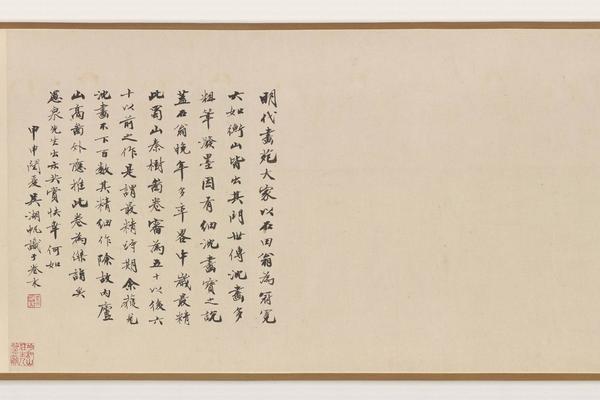 明代畫苑大家以石田翁為冠冕
大如衡山皆出其門世傳沈畫多
粗筆潑墨因有細沈畫寶之說
蓋石翁晚年多率畧中歲最精
此蜀山秦樹圖卷審為五十以後六
十以前之作是謂最精時期余獲見
沈畫不下百數其精細作除故內廬
山高圖外應推此卷為傑詣矣
愚泉先生出示共賞快幸何如
甲申閏夏吳湖帆識于卷末